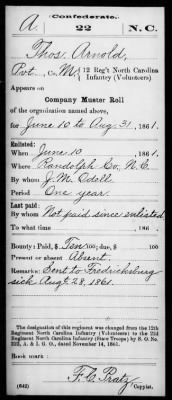 (Confederate.)
A. 22 N.C.
Thos. Arnold,
Pvt., Co. M, 12 Reg't North Carolina
Infantry (Volunteers)
Appears on
Company Muster Roll
of the organization named above,
for June 10 to Aug 31, 1861.
Enlisted:
When June 10, 1861.
Where Randolph Co, N.C.
By whom J. M. Odell
Period One year.
Last paid:
By whom Not paid since enlisted
To what time , 186 .
Bounty: Paid, $ Ten /100; due, $ 100
Present or absent Absent.
Remarks: Sent to Fredricksburg
sick Augt. 28, 1861.
The designation of this regiment was changed from the 12th
Regiment North Carolina Infantry (Volunteers) to the 22d
Regiment North Carolina Infantry (State Troops) by S. O. No.
222, A. & I. G. O., dated November 14, 1861.
Book mark:
(642) Copyist.